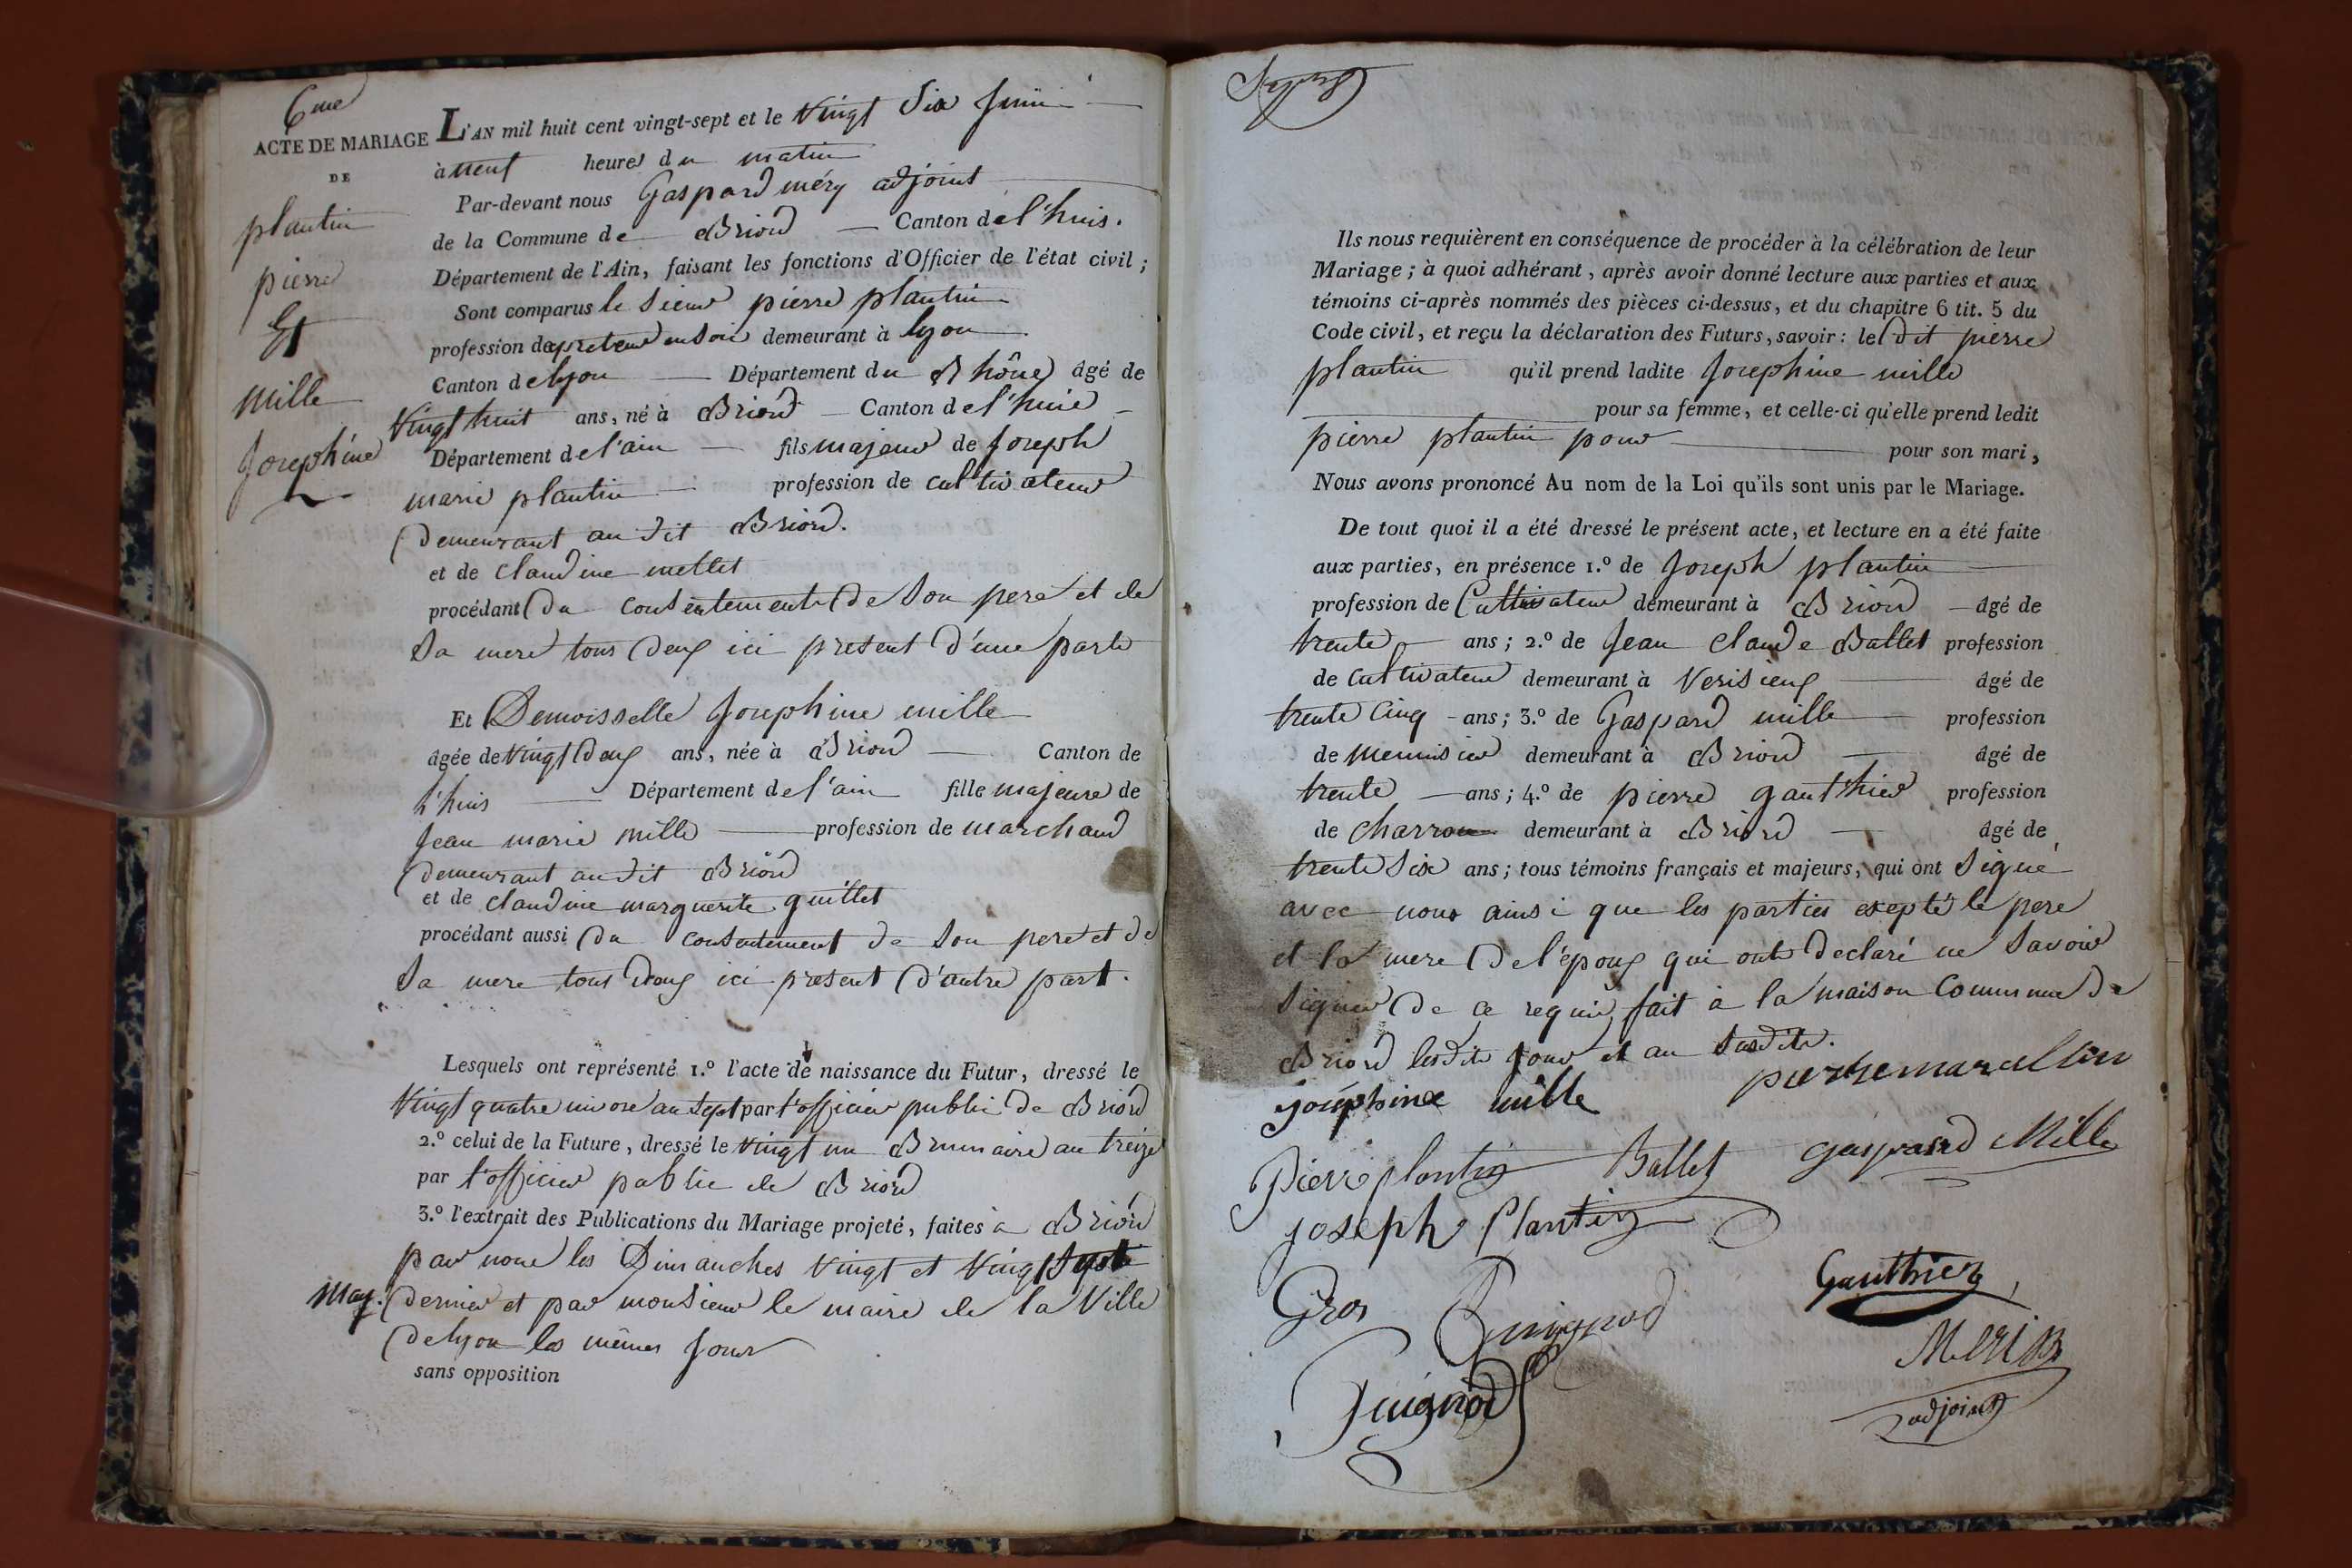 6me
ACTE DE MARIAGE
DE
plantin
pierre
Et
Mille
Josephine
L'AN mil huit cent vingt-sept et le vingt Six Juin
à neuf heures du matin
Par-devant nous Gaspard méry adjoint
de la Commune de Briord Canton de l'huis.
Département de l'Ain, faisant les fonctions d'Officier de l'état civil ;
Sont comparus le Sieur pierre plantin
profession de en Soie demeurant à lyon
Canton de lyon Département du Rhône âgé de
vingt huit ans, né à Briord Canton de l'huis
Département de l'ain fils majeur de Joseph
marie plantin profession de cultivateur
demeurant au dit Briord.
et de claudine mellet
procédant du consentement de Son pere et de
Sa mere tous deux ici present d'une part
Et Demoisselle Josephine mille
âgée de vingt deux ans, née à Briord Canton de
l'huis Département de l'ain fille majeure de
Jean marie mille profession de marchand
demeurant au dit Briord
et de claudine marguerite quillet
procédant aussi du consentement de Son pere et de
Sa mere tous deux ici present d'autre part.
Lesquels ont représenté 1.º l'acte de naissance du Futur, dressé le
vingt quatre nivose an Sept par l'officier public de Briord
2.º celui de la Future, dressé le vingt un Brumaire an treize
par l'officier public de Briord
3.º l'extrait des Publications du Mariage projeté, faites à Briord
par nous les Dimanches vingt et vingt Sept
may. dernier et par monsieur le maire de la Ville
de lyon les mêmes jour
sans opposition
Ils nous requièrent en conséquence de procéder à la célébration de leur
Mariage ; à quoi adhérant, après avoir donné lecture aux parties et aux
témoins ci-après nommés des pièces ci-dessus, et du chapitre 6 tit. 5 du
Code civil, et reçu la déclaration des Futurs, savoir : le dit pierre
plantin qu'il prend ladite Josephine mille
pour sa femme, et celle-ci qu'elle prend ledit
pierre plantin pour pour son mari,
Nous avons prononcé Au nom de la Loi qu'ils sont unis par le Mariage.
De tout quoi il a été dressé le présent acte, et lecture en a été faite
aux parties, en présence 1.º de Joseph plantin
profession de Cultivateur demeurant à Briord âgé de
trente ans ; 2.º de Jean Claude Ballet profession
de cultivateur demeurant à Verisieux âgé de
trente Cinq ans ; 3.º de Gaspard mille profession
de menuisier demeurant à Briord âgé de
trente ans ; 4.º de pierre gauthier profession
de charron demeurant à Briord âgé de
trente Six ans ; tous témoins français et majeurs, qui ont Signé
avec nous ainsi que les parties exepté le pere
et la mere de l'epoux qui ont declaré ne Savoir
Signer de ce requis, fait à la maison Commune de
Briord lesdits jour et an Susdits.
josephine mille
Pierre plantin Ballet gaspard Mille
joseph Plantin
Gros Guignod Gauthier
Guignod
adjoint